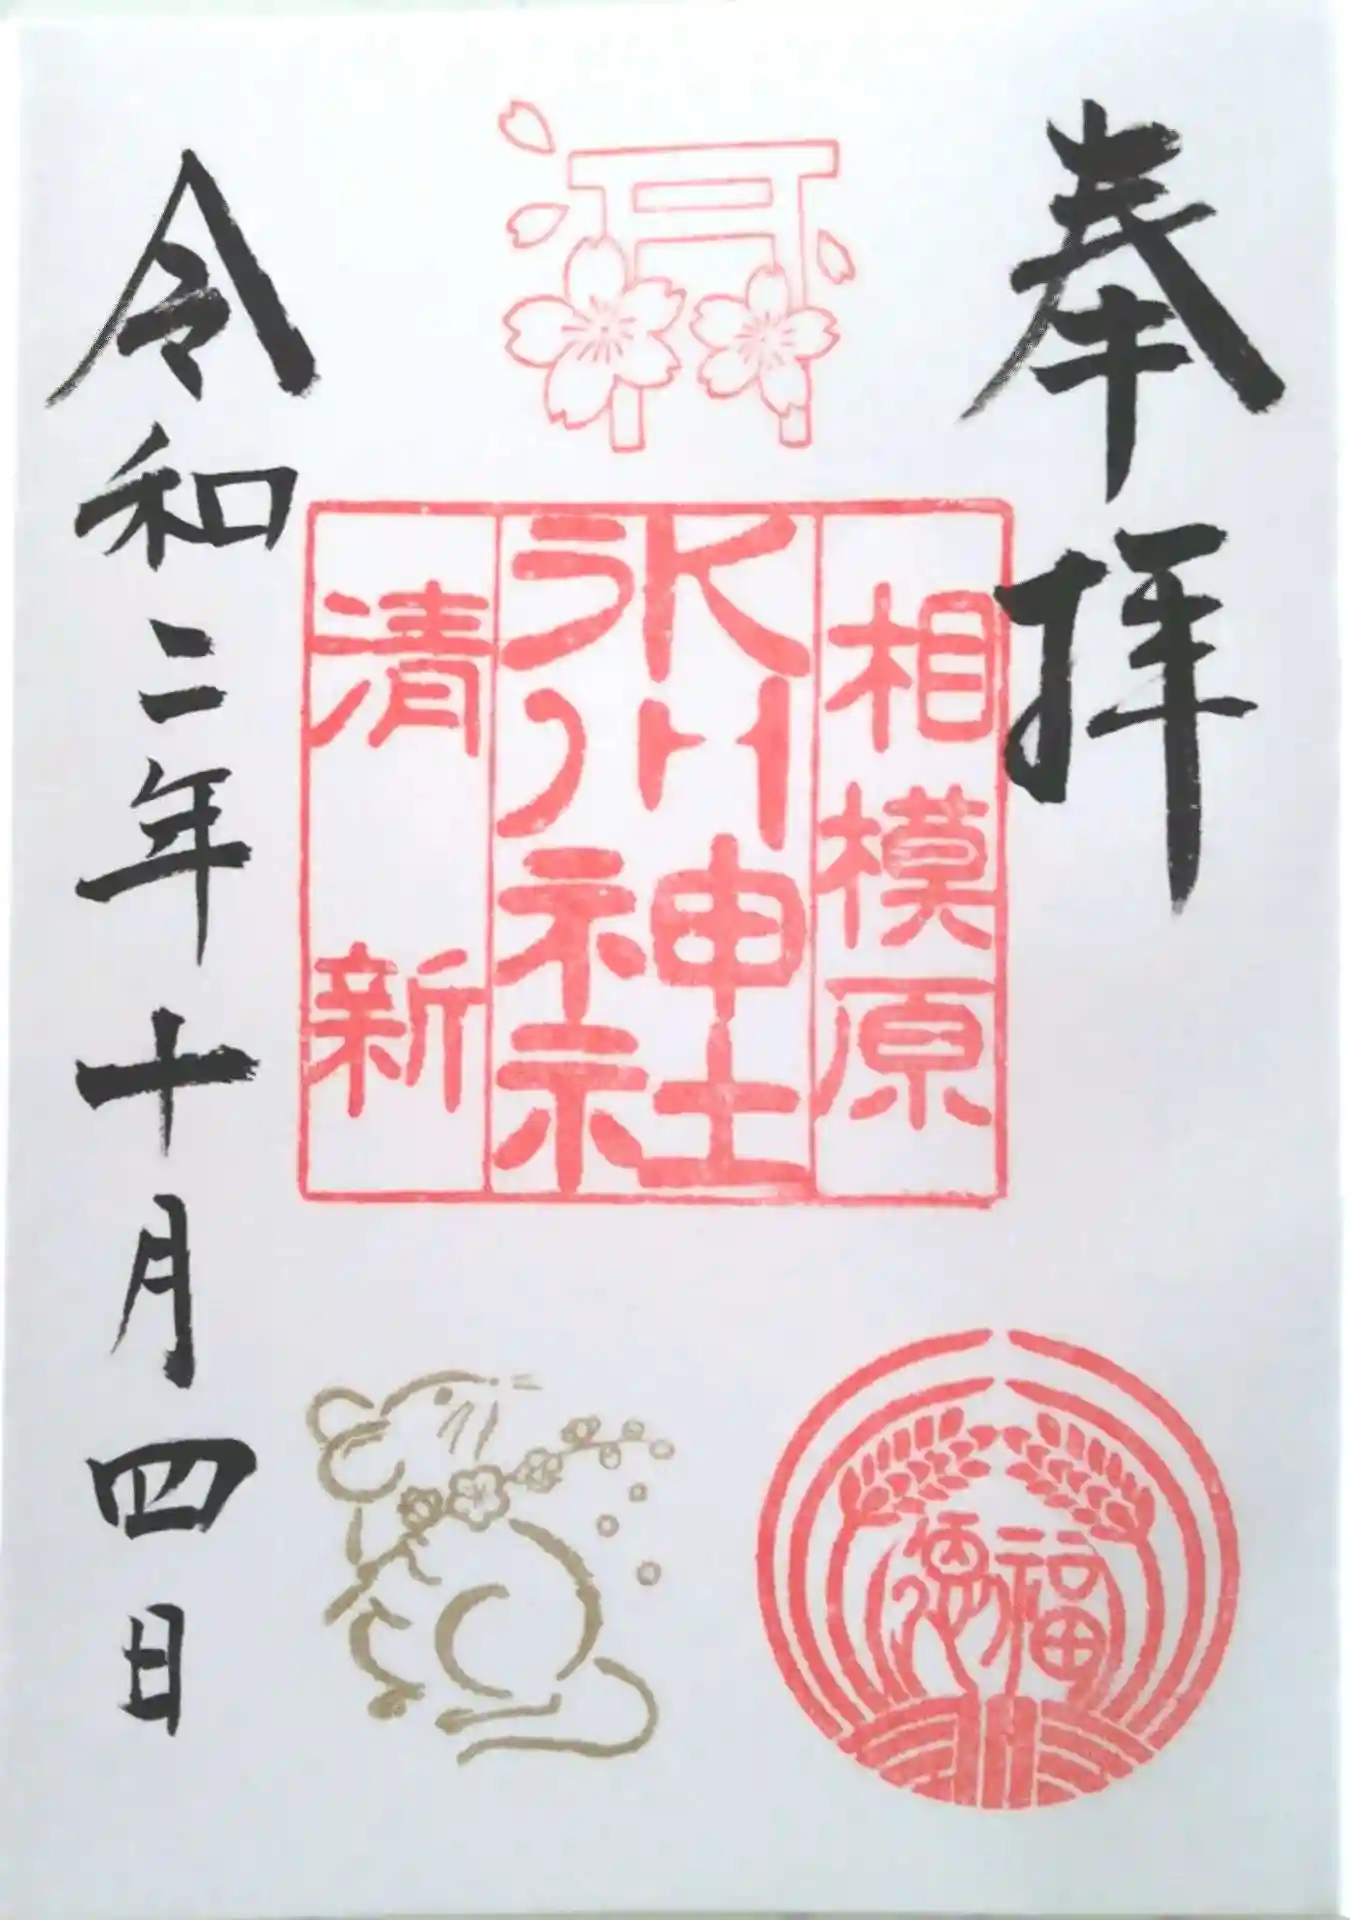 奉拝
相模原
氷川神社
清新
令和二年十月四日
福徳